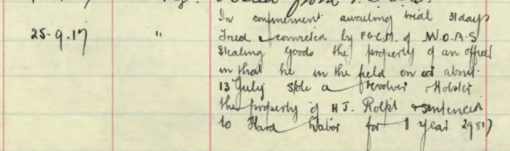 In confinement awaiting trial 31 days
25-9-17 " Tried & convicted by F.G.C.M. of W.O.A.S
Stealing goods the property of an officer
in that he in the field on or about
13 July stole a revolver & Holster
the property of H J. Rolph & sentenced
to Hard Labor for 1 year